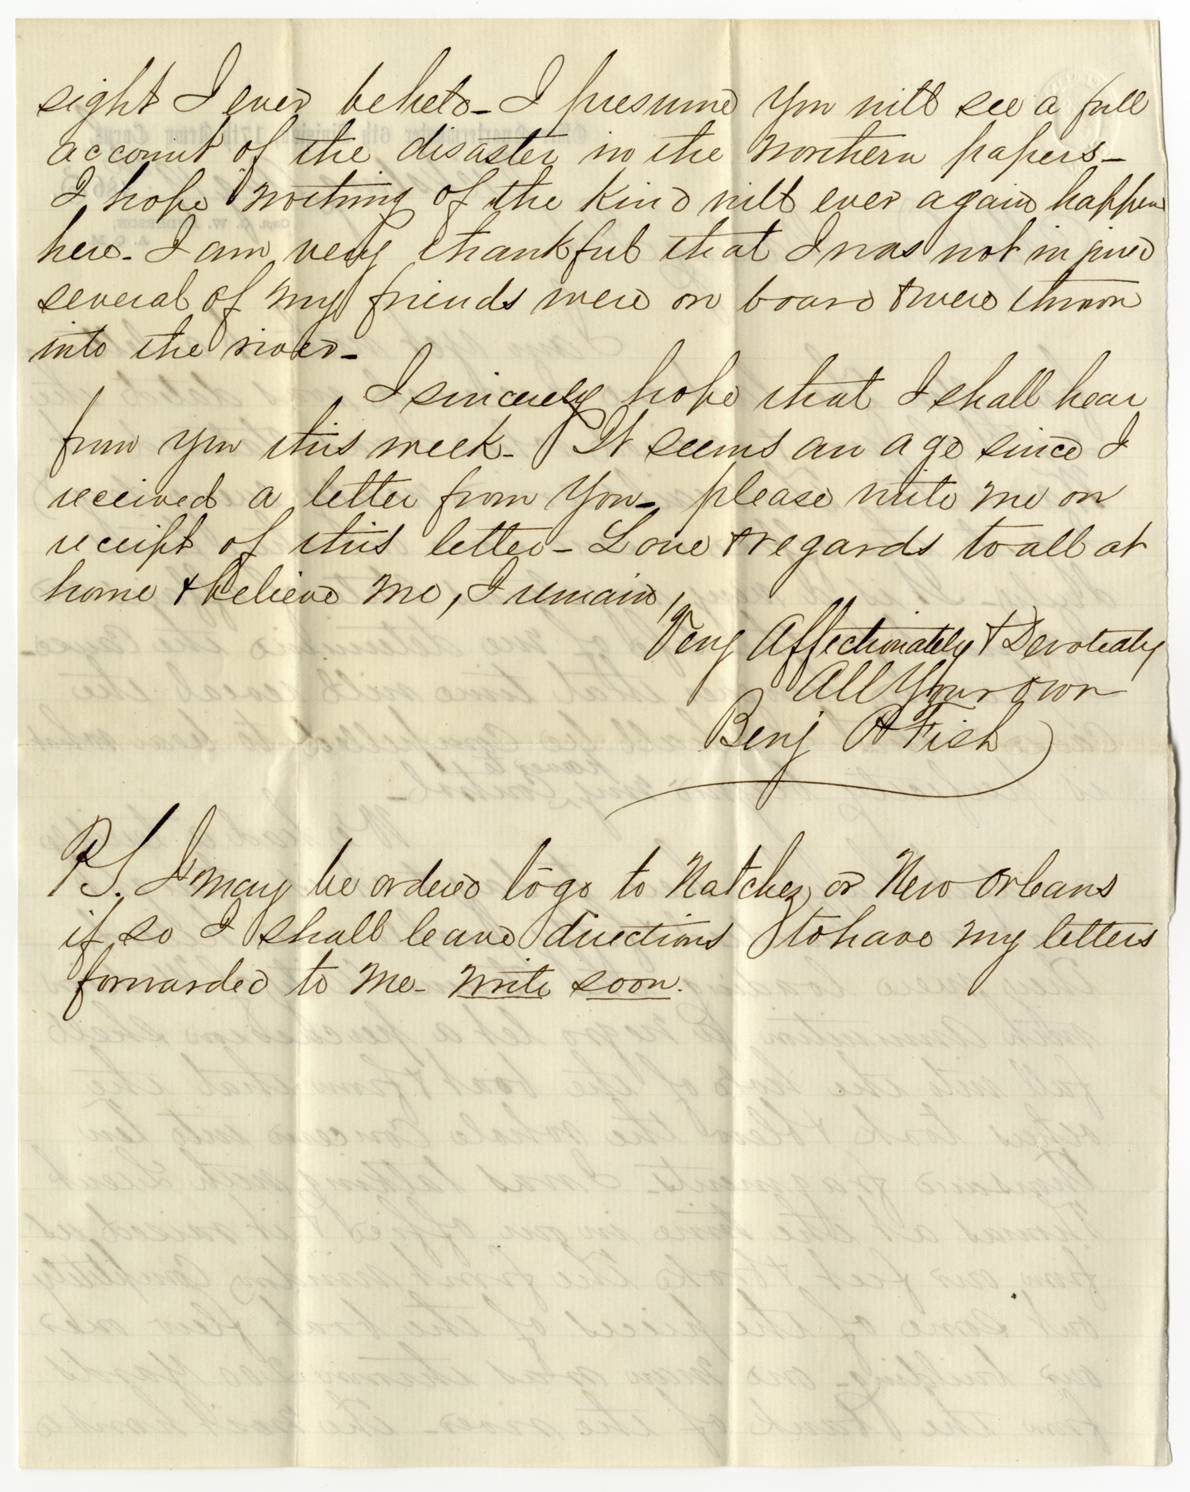 sight I ever beheld - I presume you will see a full
account of the disaster in the Northern papers -
I hope nothing of the kind will ever again happen
here. I am very thankful that I was not injured
several of my friends were on board & were thrown
into the river -
I sincerely hope that I shall hear
from you this week - It seems an age since I
received a letter from you - please write me on
receipt of this letter - Love & regards to all at
home & believe me, I remain,
Very Affectionately & Devotedly
All Your own
Benj A Fish
P.S. I may be ordered to go to Natchez or New Orleans
if so I shall leave directions to have my letters
forwarded to me - write soon.